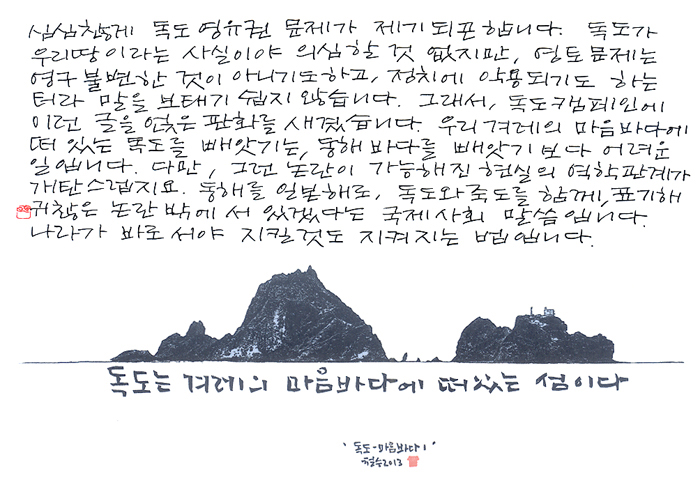 심심찮게 독도 영유권 문제가 제기되곤 합니다. 독도가
우리땅이라는 사실이야 의심할 것 없지만, 영토문제는
영구불변한 것이 아니기도하고, 정치에 악용되기도 하는
터라 말을 보태기 쉽지 않습니다. 그래서, 독도캠페인에
이런 글을 얹은 판화를 새겼습니다. 우리 겨레의 마음바다에
떠 있는 독도를 빼앗기는, 동해바다를 빼앗기보다 어려운
일입니다. 다만, 그런 논란이 가능해진 현실의 역학관계가
개탄스럽지요. 동해를 일본해로, 독도와 죽도를 함께, 표기해
귀찮은 논란 밖에 서 있겠다는 국제사회 말씀입니다.
나라가 바로 서야 지킬것도 지켜지는 법입니다.
독도는 겨레의 마음바다에 떠있는 섬이다
'독도-마음바다1'
철수2013